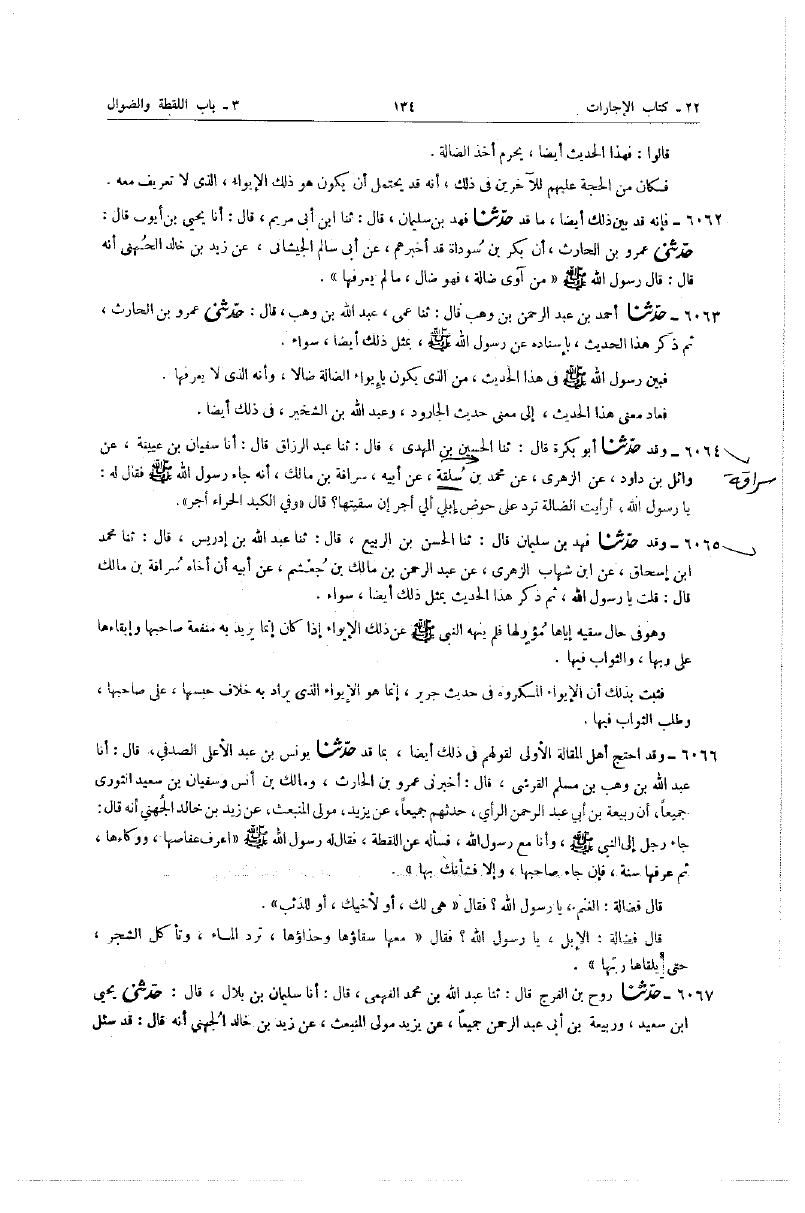 ٢٢ ـ كتاب الإجارات ١٣٤ ٣ ـ باب اللقطة والضوال
قالوا : فهذا الحديث أيضا ، يحرم أخذ الضالة .
فكان من الحجة عليهم للآخرين فى ذلك ، أنه قد يحتمل أن يكون هو ذلك الإيواء ، الذى لا تعريف معه .
٦٠٦٢ ـ فإنه قد بين ذلك أيضا ، ما قد حدثنا فهد بن سليمان ، قال : ثنا ابن أبى مريم ، قال : أنا يحيي بن أيوب قال :
حدثنى عمرو بن الحارث ، أن بكر بن سُوداة قد أخبرهم ، عن أبي سالم الجيشانى ، عن زيد بن خالد الجُهنى أنه
قال : قال رسول الله ﷺ « من آوى ضالة ، فهو ضال ، مالم يعرفها » .
٦٠٦٣ ـ حدثنا أحمد بن عبد الرحمن بن وهب قال : ثنا عمى ، عبد الله بن وهب ، قال : حدثنى عمرو بن الحارث ،
ثم ذكر هذا الحديث ، بإسناده عن رسول الله ﷺ ، بمثل ذلك أيضا ، سواء .
فبين رسول الله ﷺ فى هذا الحديث ، من الذى يكون بإيواء الضالة ضالا ، وأنه الذى لا يعرفها .
فعاد معنى هذا الحديث ، إلى معنى حديث الجارود ، وعبد الله بن الشخير ، فى ذلك أيضا .
٦٠٦٤ ـ وقد حدثنا أبو بكرة قال : ثنا الحسين بن المهدى ، قال : ثنا عبد الرزاق قال : أنا سفيان بن عيينة ، عن
وائل بن داود ، عن الزهرى ، عن محمد بن سُلقة ، عن أبيه ، سرافة بن مالك ، أنه جاء رسول الله ﷺ فقال له :
سراقة
يا رسول الله ، أرأيت الضالة ترد على حوض إبلي ألي أجر إن سقيتها؟ قال «وفي الكبد الحراء أجر».
٦٠٦٥ ـ وقد حدثنا فهد بن سليمان قال : ثنا الحسن بن الربيع ، قال : ثنا عبد الله بن إدريس ، قال : ثنا محمد
ابن إسحاق ، عن ابن شهاب الزهرى ، عن عبد الرحمن بن مالك بن جُعْشم ، عن أبيه أن أخاه سُرافة بن مالك
قال : قلت يا رسول الله ، ثم ذكر هذا الحديث بمثل ذلك أيضا ، سواء .
وهو فى حال سقيه إياها مُؤولها فلم ينهه النبي ﷺ عن ذلك الإيواء إذا كان إنما يريد به منفعة صاحبها وإبقاءها
على ربها ، والثواب فيها .
فثبت بذلك أن الإيواء المسكروه فى حديث جرير ، إنما هو الإيواء الذى يراد به خلاف حبسها ، على صاحبها ،
وطلب الثواب فيها .
٦٠٦٦ ـ وقد احتج أهل المقالة الأولى لقولهم فى ذلك أيضا ، بما قد حدثنا يونس بن عبد الأعلى الصدفي ، قال : أنا
عبد الله بن وهب بن مسلم القرشى ، قال : أخبرنى عمرو بن الحارث ، ومالك بن أنس وسفيان بن سعيد الثورى
جميعاً ، أن ربيعة بن أبي عبد الرحمن الرأي ، حدثهم جميعاً ، عن يزيد ، مولى المنبعث ، عن زيد بن خالد الجُهني أنه قال :
جاء رجل إلى النبي ﷺ ، وأنا مع رسول الله ، فسأله عن اللقطة ، فقال له رسول الله ﷺ «اعرف عفاصها ، ووكاءها ،
ثم عرفها سنة ، فإن جاء صاحبها ، وإلا فشأنك بها » .
قال فضالة : الغنم ، يا رسول الله ؟ فقال « هى لك ، أو لأخيك ، أو للذئب» .
قال فضالة : الإبل ، يا رسول الله ؟ فقال « معها سقاؤها وحذاؤها ، ترد الماء ، وتأكل الشجر ،
حتى يلقاها ربها » .
٦٠٦٧ ـ حدثنا روح بن الفرج قال : ثنا عبد الله بن محمد الفهمى ، قال : أنا سليمان بن بلال ، قال : حدثنى يحيي
ابن سعيد ، وربيعة بن أبى عبد الرحمن جميعاً ، عن يزيد مولى المنبعث ، عن زيد بن خالد الُجهني أنه قال : قد سئل